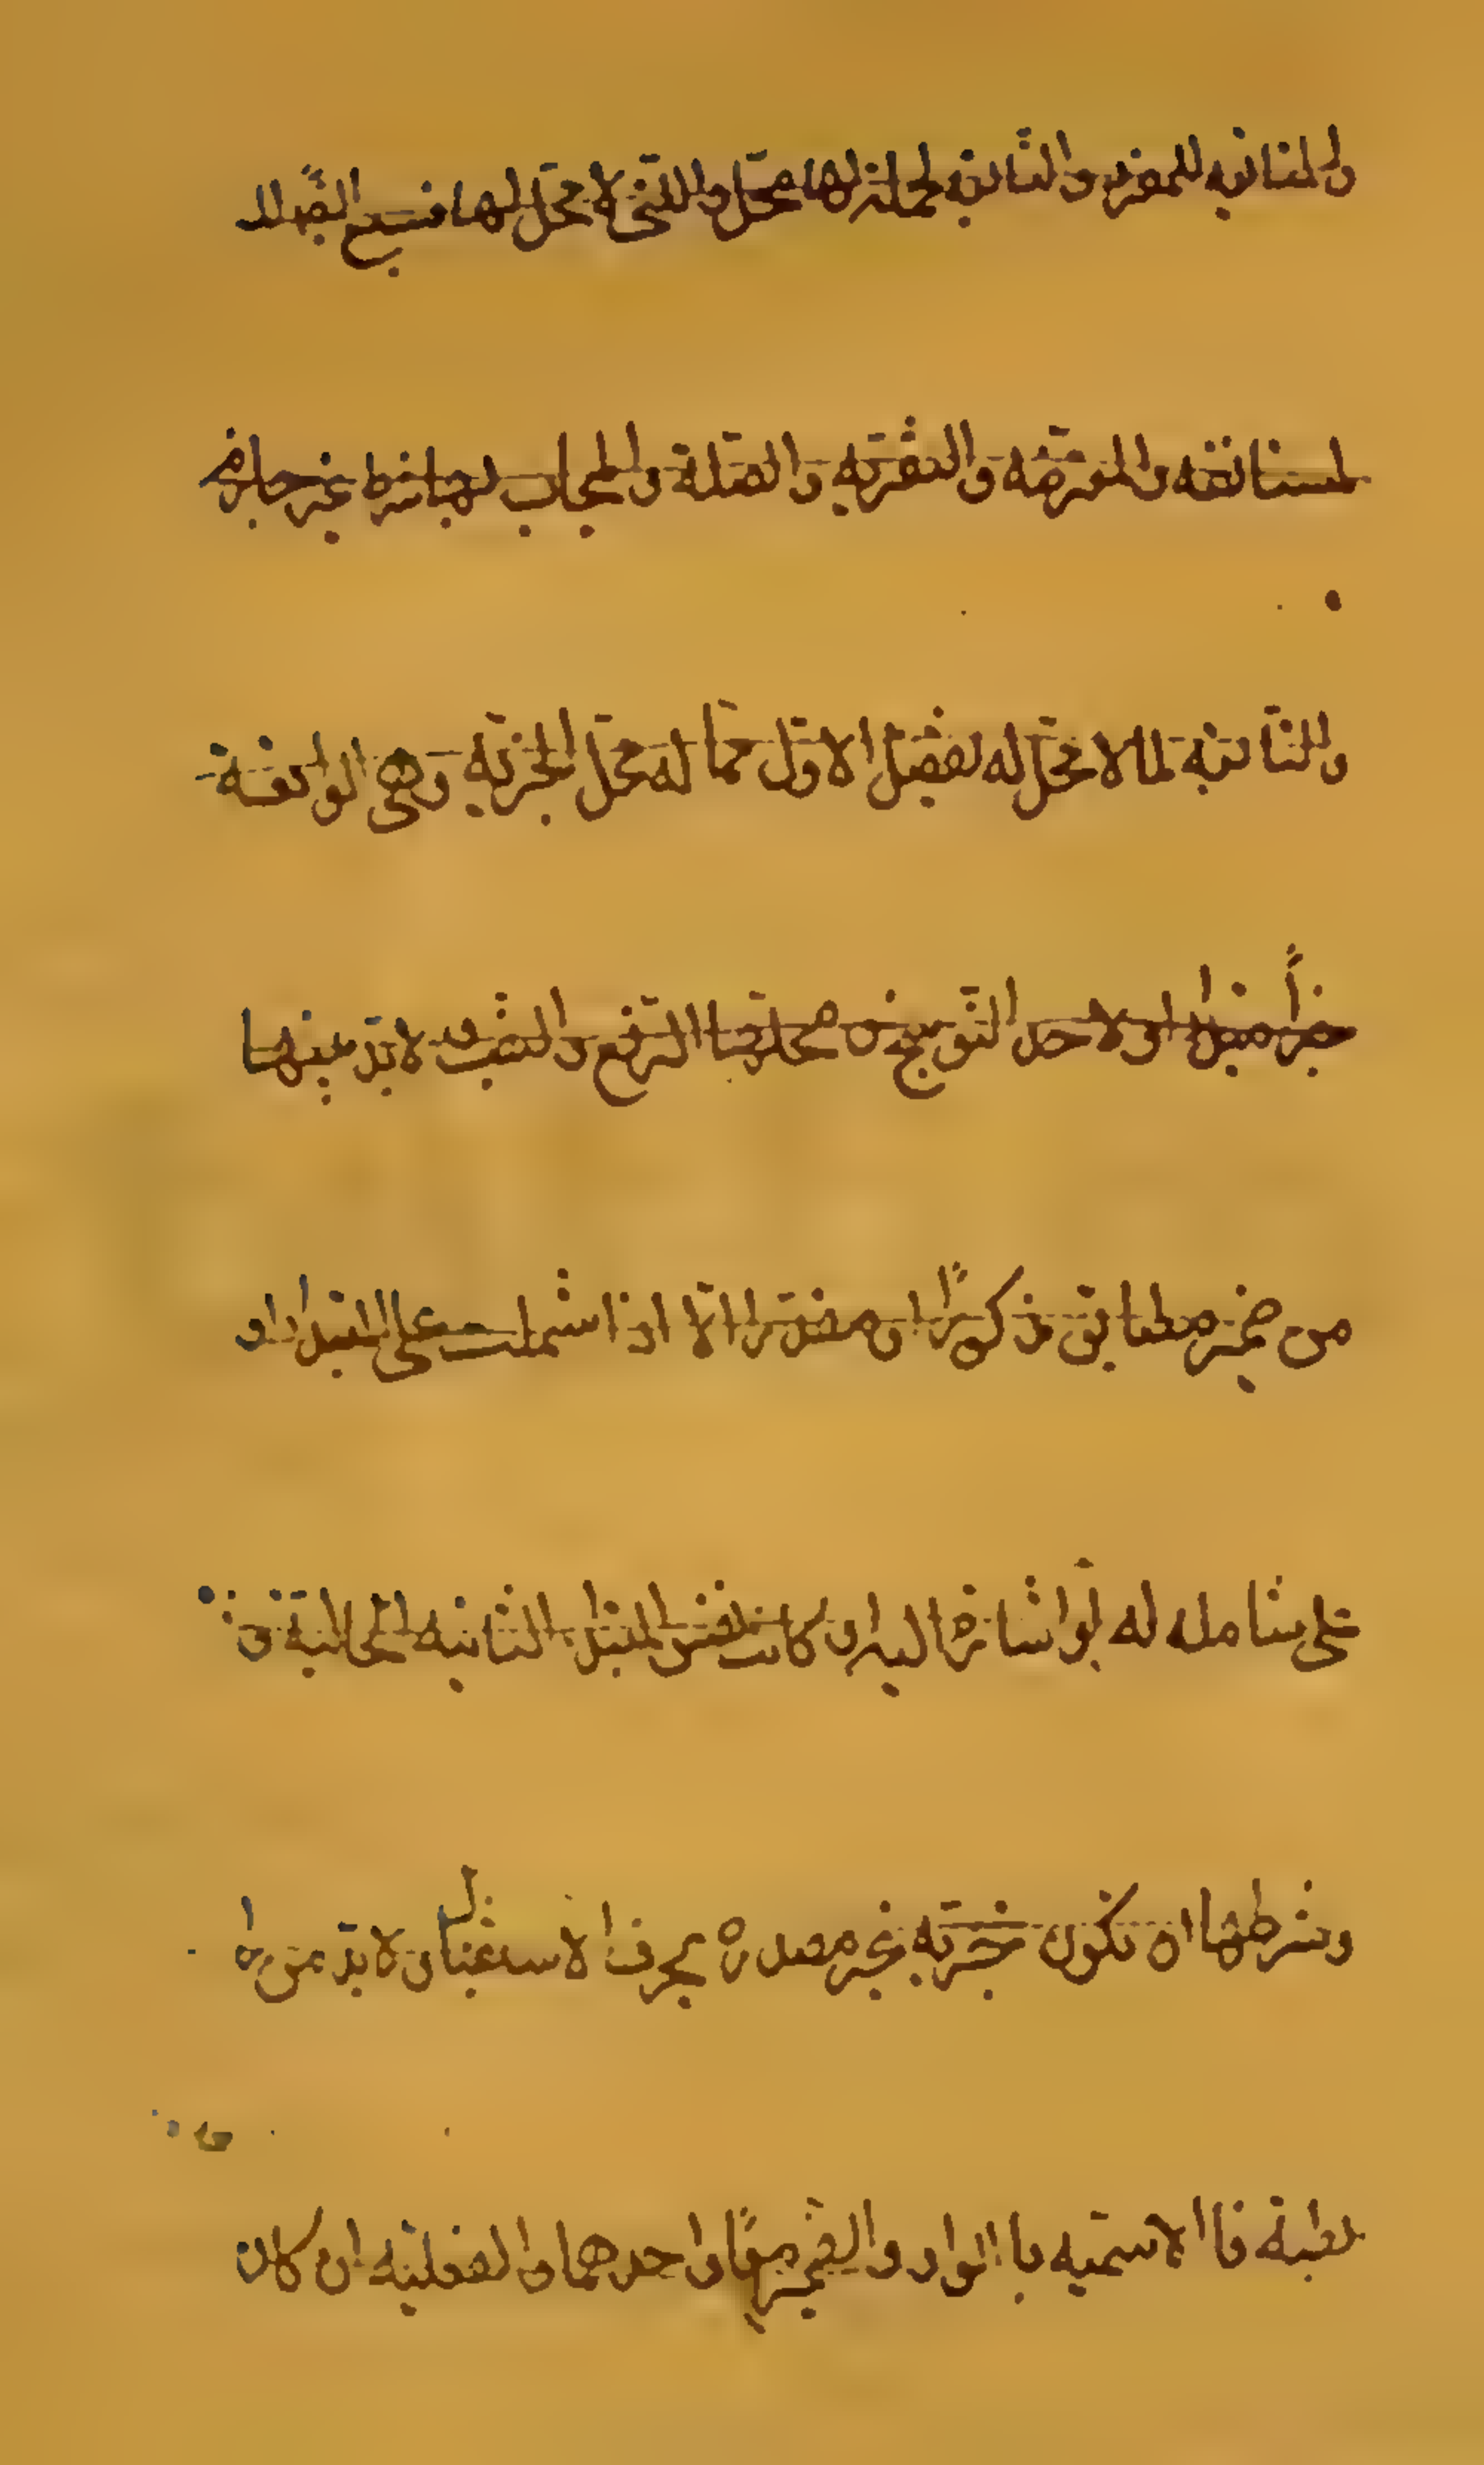 والثانية للمفرد والثانية لجملة لها محل والتي لا محل لها فسبع الصلة
المستأنفة والمعترضة والتفسيرية والصلة والمجاب بها شرط غير جازم
والثانية لما لا محل له تفصيل الاول مما له محل الخبرية وهي الواقعة
خبراً مبتدأ او لاحد النواسخ محلها الرفع والنصب لا بد فيها
من ضمير مطابق مذكوراً او مقدراً الا اذا اشتملت على المبتدا او
على شامل له او اشارة اليه او كانت نفس المبتدا الثانية الحالية
وشرطها ان تكون خبرية غير مصدرة بحرف الاستقبال لا بد من را
بطة فالاسمية بالواو والضمير معاً او احدهما والفعلية ان كان